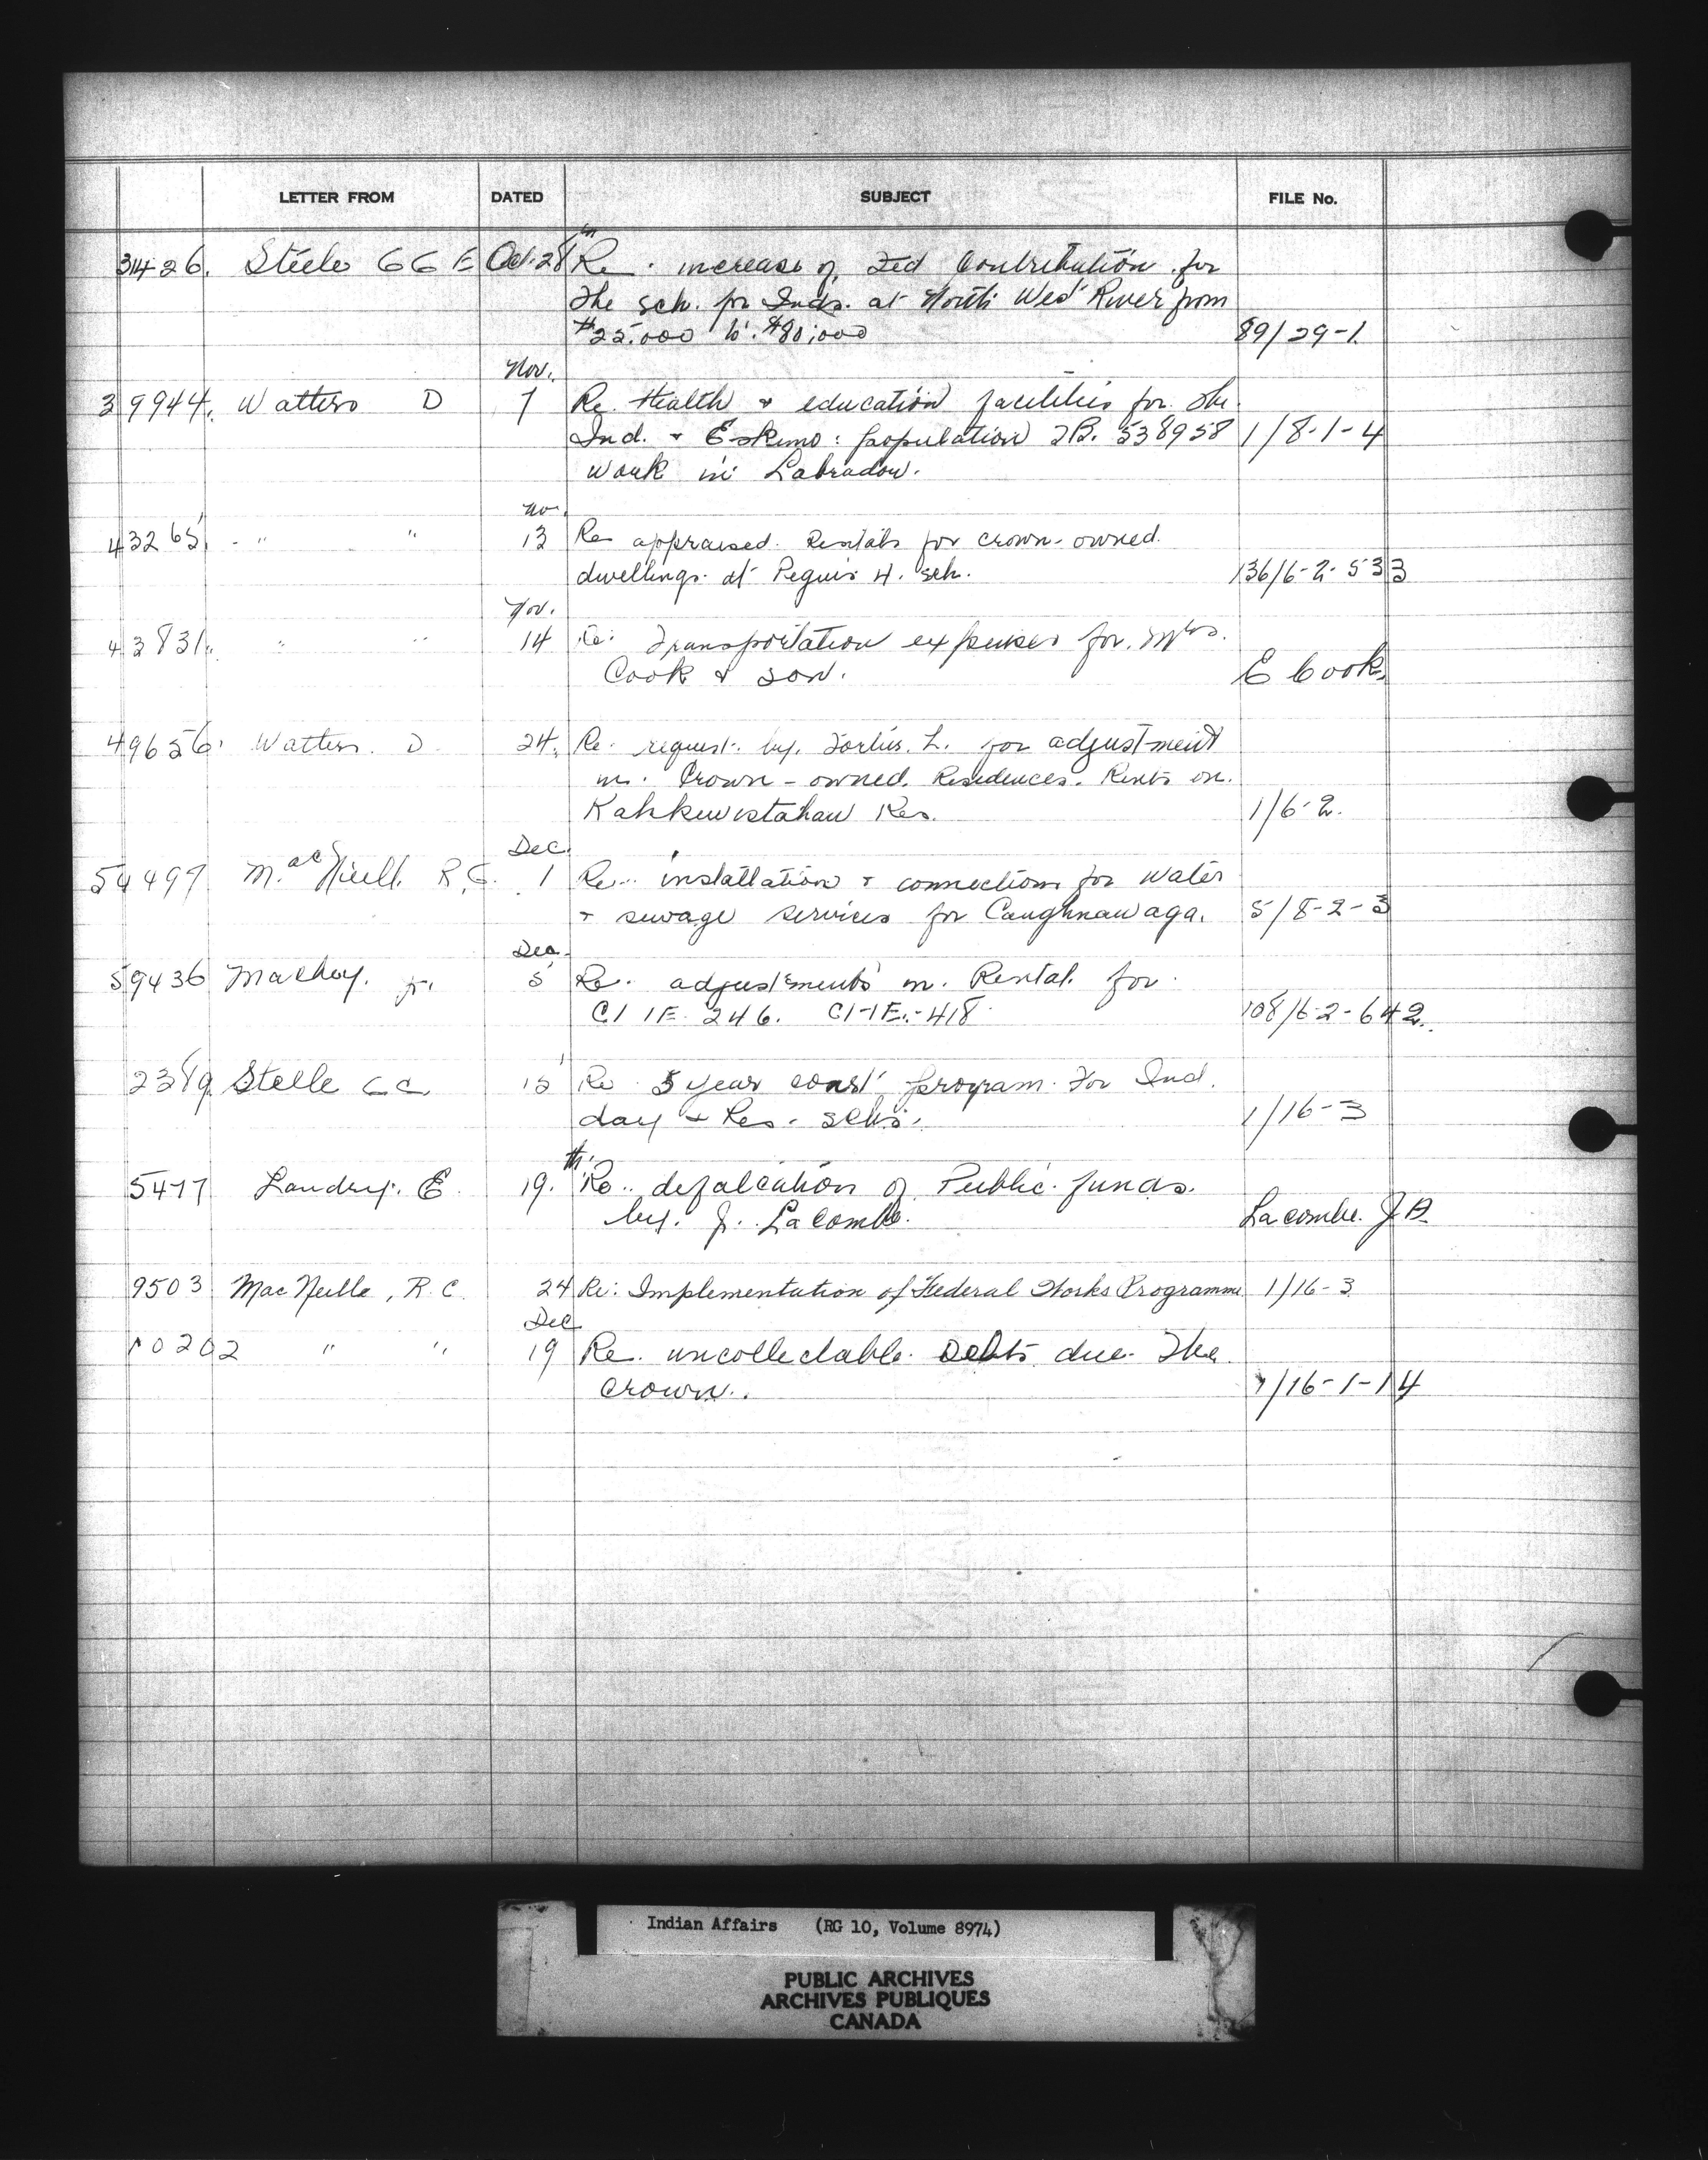 LETTER FROM DATED SUBJECT FILE No.
31426. Steele G G E Oct. 28 Re. increase of Fed Contribution for
the sch. for Inds. at North West River from
$25,000 to $80,000 89/29-1.
Nov.
39944. Watters D 7 Re. Health & education facilities for the
Ind. & Eskimo: population TB. 538958 1/8-1-4
work in Labrador.
No.
43265 " " 13 Re appraised Rentals for crown-owned
dwellings at Peguis H. sch. 136/6-2-533
Nov.
43831. " " 14 Re: Transportation expenses for Mrs.
Cook & son. E Cook.
49656. Watters D 24. Re. request by L. for adjustment
in Crown-owned Residences. Rents on
Kahkewistahaw Res. 1/6-2.
Dec.
54497 MacNeill R.C. 1 Re. installation & connections for water
& sewage services for Caughnawaga. 5/8-2-3
Dec.
59436 5 Re. adjustments in Rental for
C1 1E 246. C1-1E-418 108/6-2-642.
2389 Stelle G C 15 Re. 5 year const program For Ind.
day & Res. schs. 1/16-3
th.
5477 Landry. E 19. Re.. defalcation of Public funds
by. J. Lacombe. Lacombe J.B.
9503 MacNeille, R. C. 24 Re: Implementation of Federal Works Programme 1/16-3
Dec
10202 " " 19 Re. uncollectable Debts due The
crown. 1/16-1-14
Indian Affairs (RG 10, Volume 8974)
PUBLIC ARCHIVES
ARCHIVES PUBLIQUES
CANADA